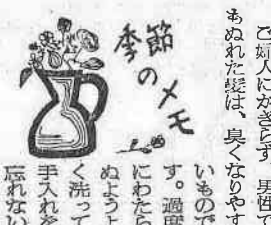 季節のメモ
ご婦人にかぎらず 男性で
もぬれた髪は、臭くなりやす
いもので
す。過度
にわたら
ぬようよ
く洗って
手入れを
忘れない